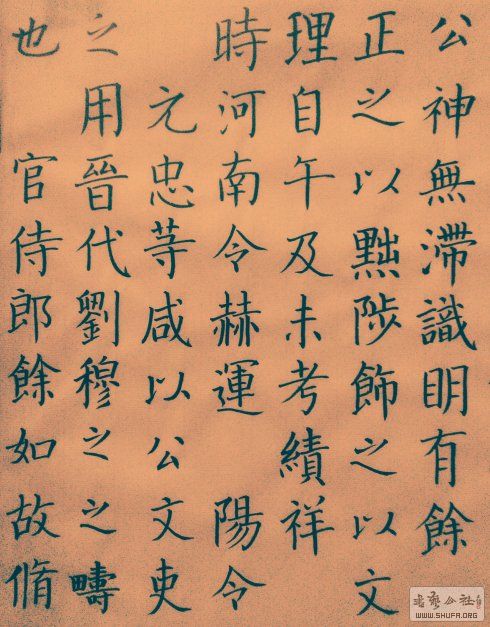 公神無滯識眀有餘
正之以黜陟飾之以文
理自午及未考績祥
時河南令赫運 陽令
元忠等咸以公文吏
之用晉代劉穆之之疇
也 官侍郎餘如故脩
書藝公社
WWW.SHUFA.ORG